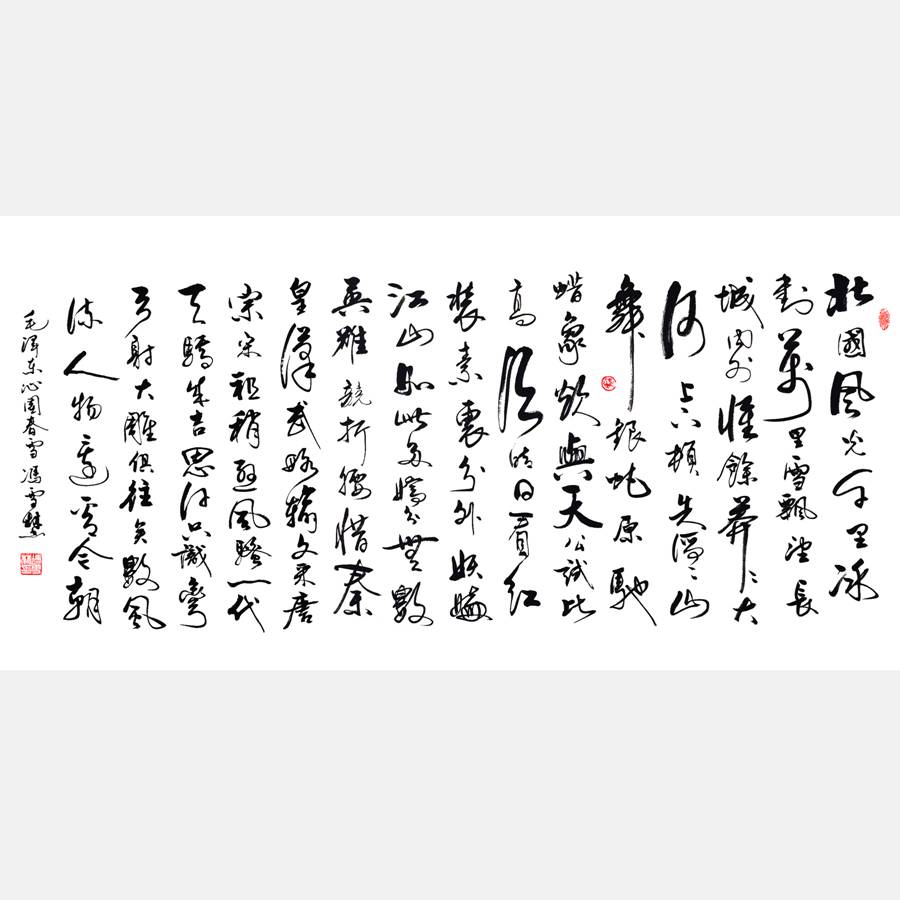 北國風光千里冰
封萬里雪飄望長
城內外惟餘莽〻大
河上下頓失滔〻山
舞銀蛇原馳
蜡象欲與天公試比
高須晴日看紅
裝素裹分外妖嬈
江山如此多嬌引無數
英雄競折腰惜秦
皇漢武略輸文采唐
宗宋祖稍遜風騷一代
天驕成吉思汗只識彎
弓射大雕俱往矣數風
流人物還看今朝
毛澤東沁園春雪馮雪